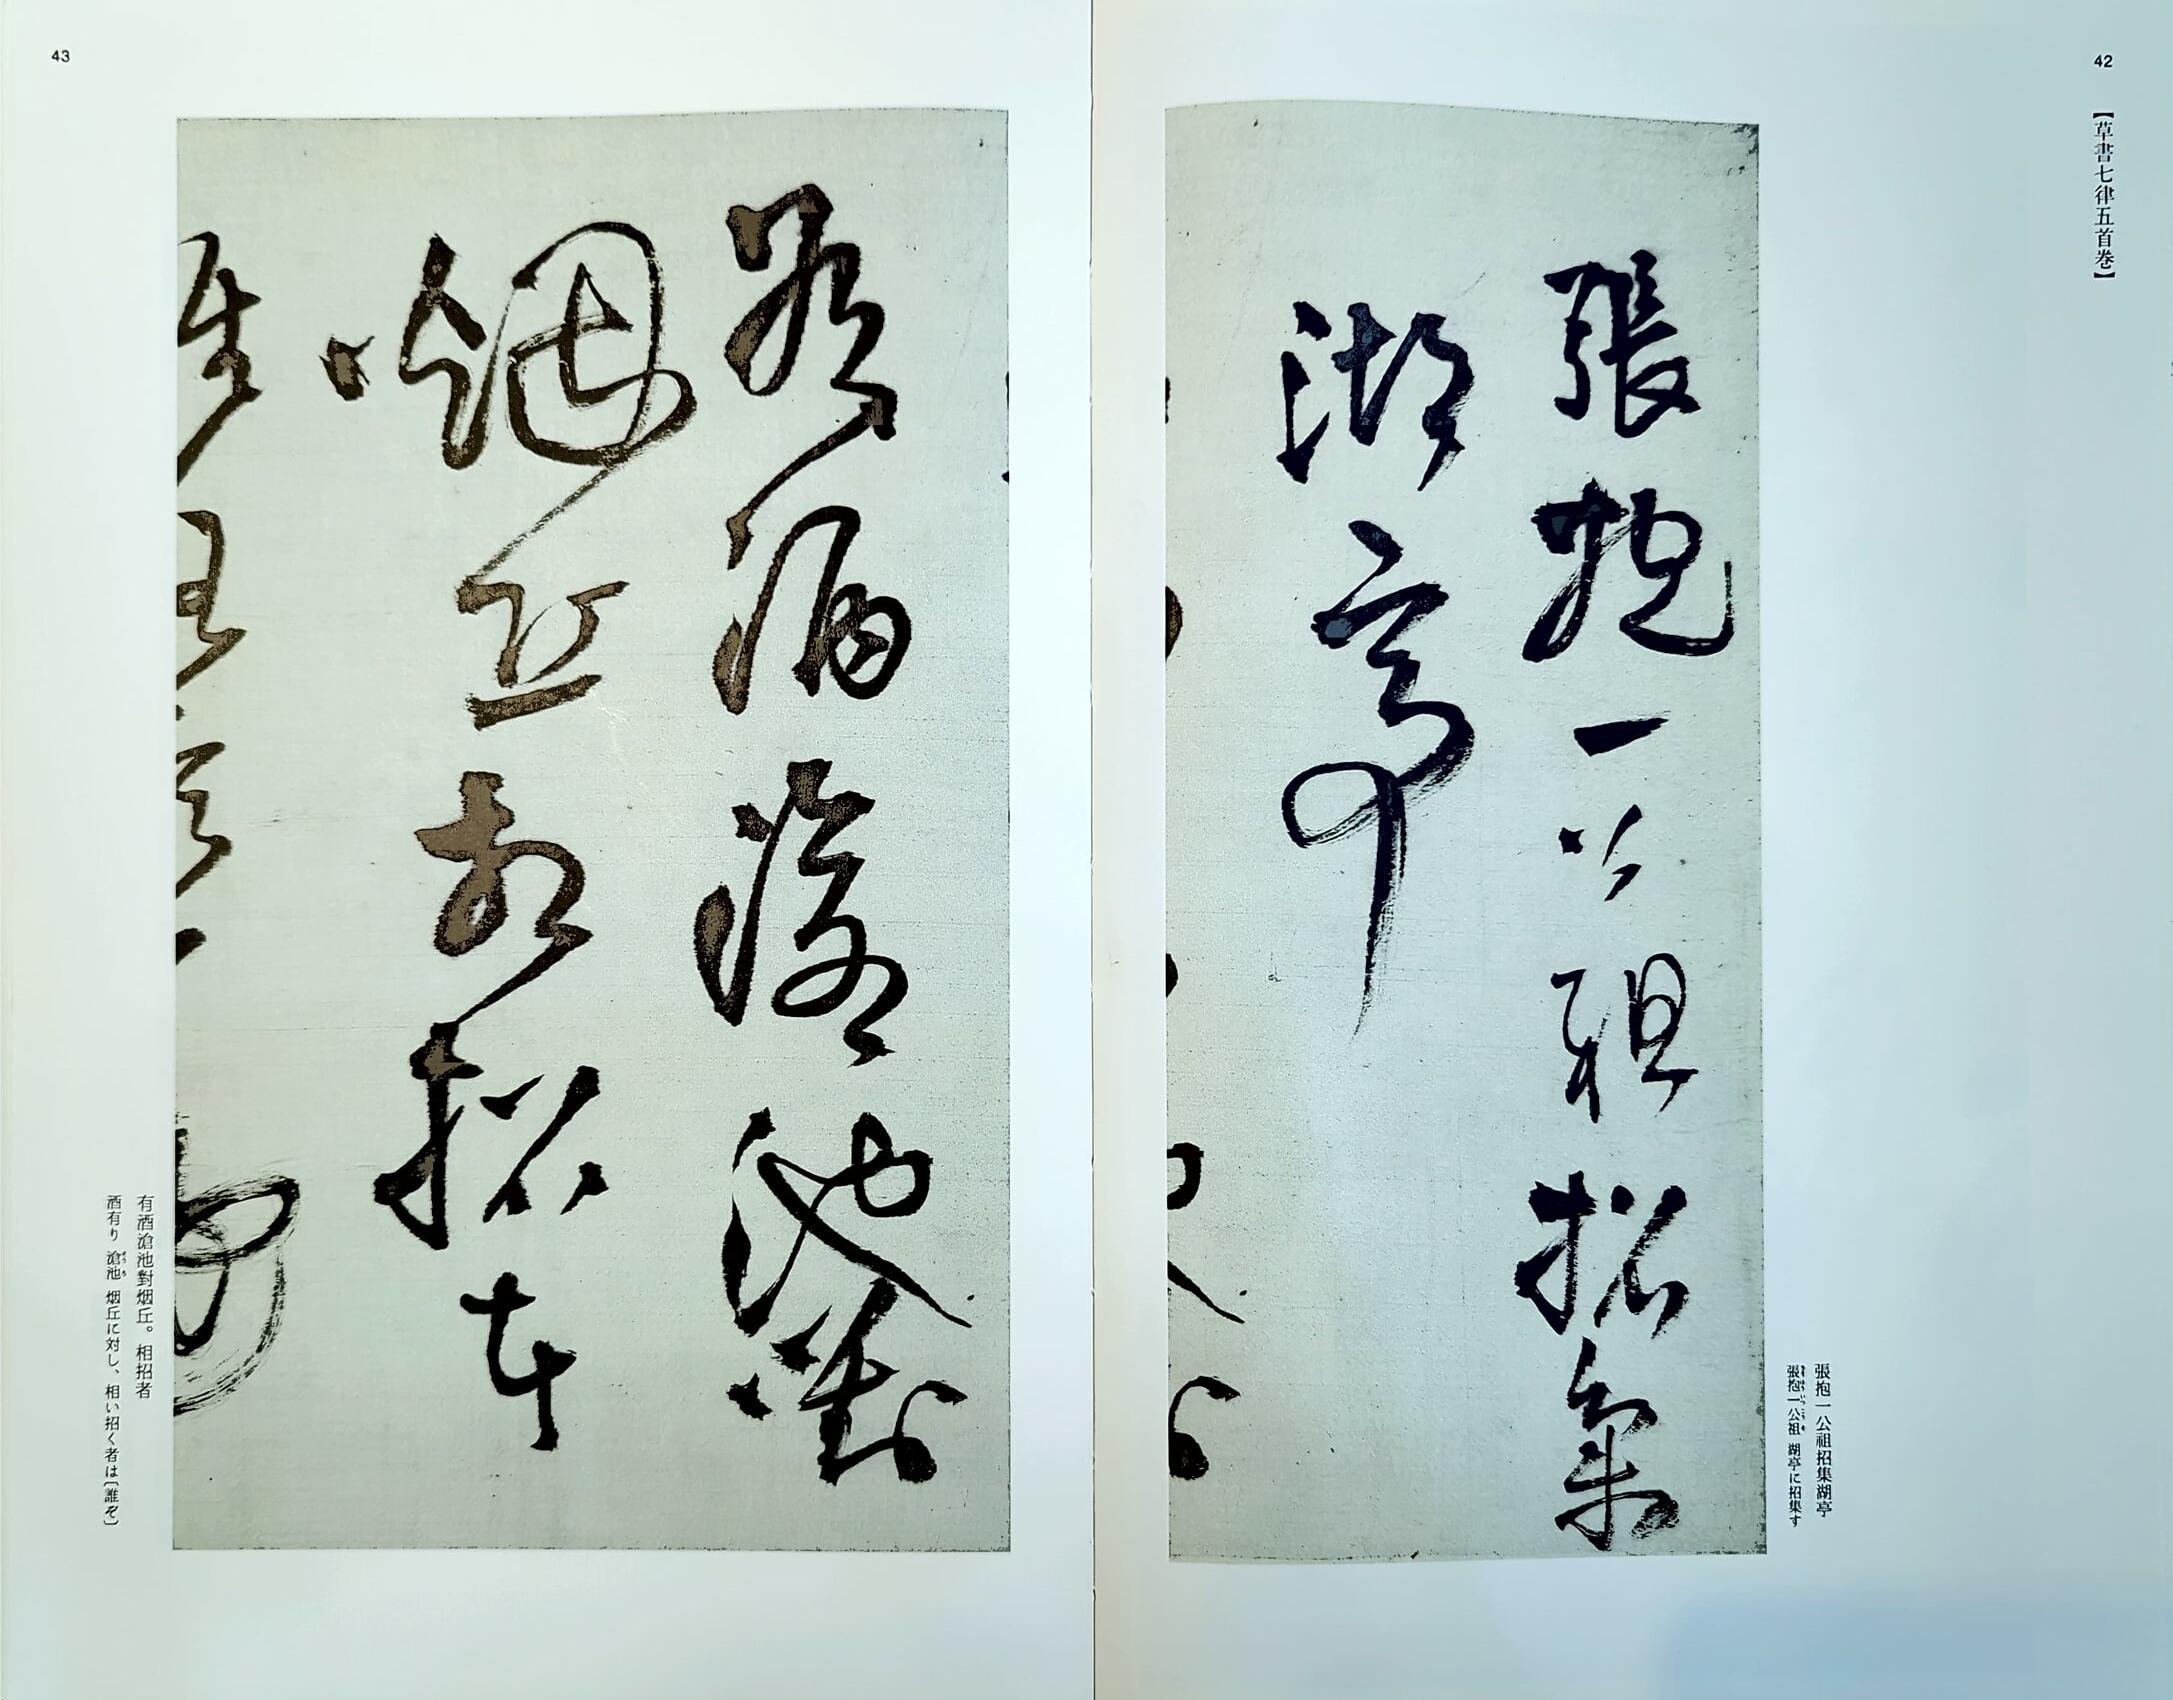 42
【草書七律五首巻】
張抱一公祖招集
湖亭
張抱一公祖招集湖亭
張抱一公祖 湖亭に招集す
43
有酒滄池對
烟丘相招者
有酒滄池對烟丘。相招者
酒有り 滄池 烟丘に対し、相い招く者は〔誰ぞ〕